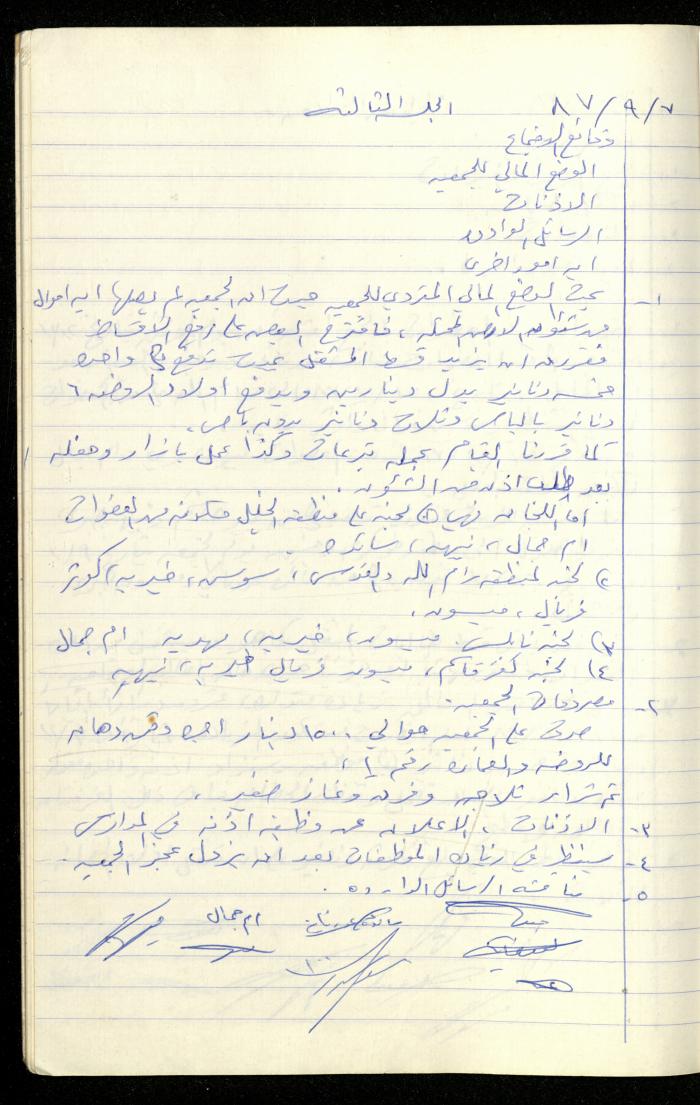 ٨٧/٩/٧ الجلسه الثالثه
وقائع الاجتماع
الوضع المالي للجمعيه
الاذنات
الرسائل الوارده
ايه امور اخرى
١- بحث الوضع المالي المتردي للجمعيه حيث ان الجمعيه لم يصلها ايه اموال
من شؤون الارض المحتله، فاقترح البعض على رفع الاقساط
فقررن ان يزيد قسط المشغل بحيث تدفع كل واحده
خمسه دنانير بدل دينارين ويدفع اولاد الروضه ٦
دنانير بالباص وثلاث دنانير بدون باص.
كما قررنا القيام بحمله تبرعات وكذا عمل بازار وحفله
بعد طلب اذن من الشؤون.
اما اللجان فهي ١) لجنه على منطقه الخليل مكونه من العضوات
ام جمال، نبيهه، سائده
٢) لجنه لمنطقه رام الله والقدس، سوسن، خيريه، كوثر
فريال، ميسون.
٣) لجنه نابلس: ميسون، خيريه، مهديه ام جمال
٤) لجنة كفرقاسم، ميسون فريال خيريه، نبيهه
٢- مصروفات الجمعيه.
صرف على الجمعيه حوالي ١٥٠٠ دينار اجره وثمن دهان
للروضه والعمارة رقم ١،
تم شراء ثلاجه وفرن وغاز صغير.
٣- الاذنات، الاعلان عن وظيفه اذنه في المدارس
٤- سينظر في زيادة الموظفات بعد ان يزول عجز الجمعيه.
٥- مناقشه الرسائل الوارده.
ام جمال